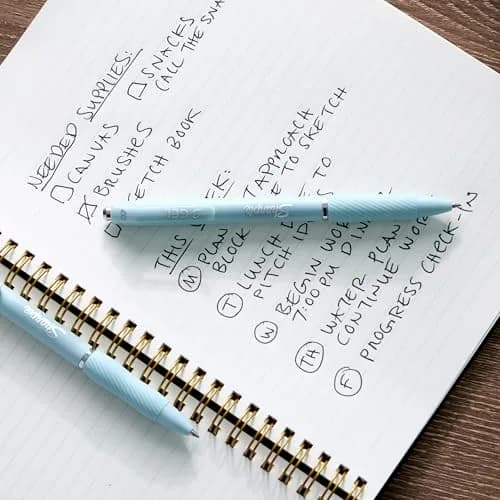 NEEDED SUPPLIES:
CANVAS
BRUSHES
ETCH BOOK
SNACKS
CALL THE SNA
THIS EK:
M PLAN APPROACH
BLOCK E TO SKETCH
T LUNCH
PITCH ID TO
W BEGIN WOR
7:00PM DIN
TH WATER PLAN
CONTINUE WOR
F PROGRESS CHECK-IN
Sharpie
Sharpie